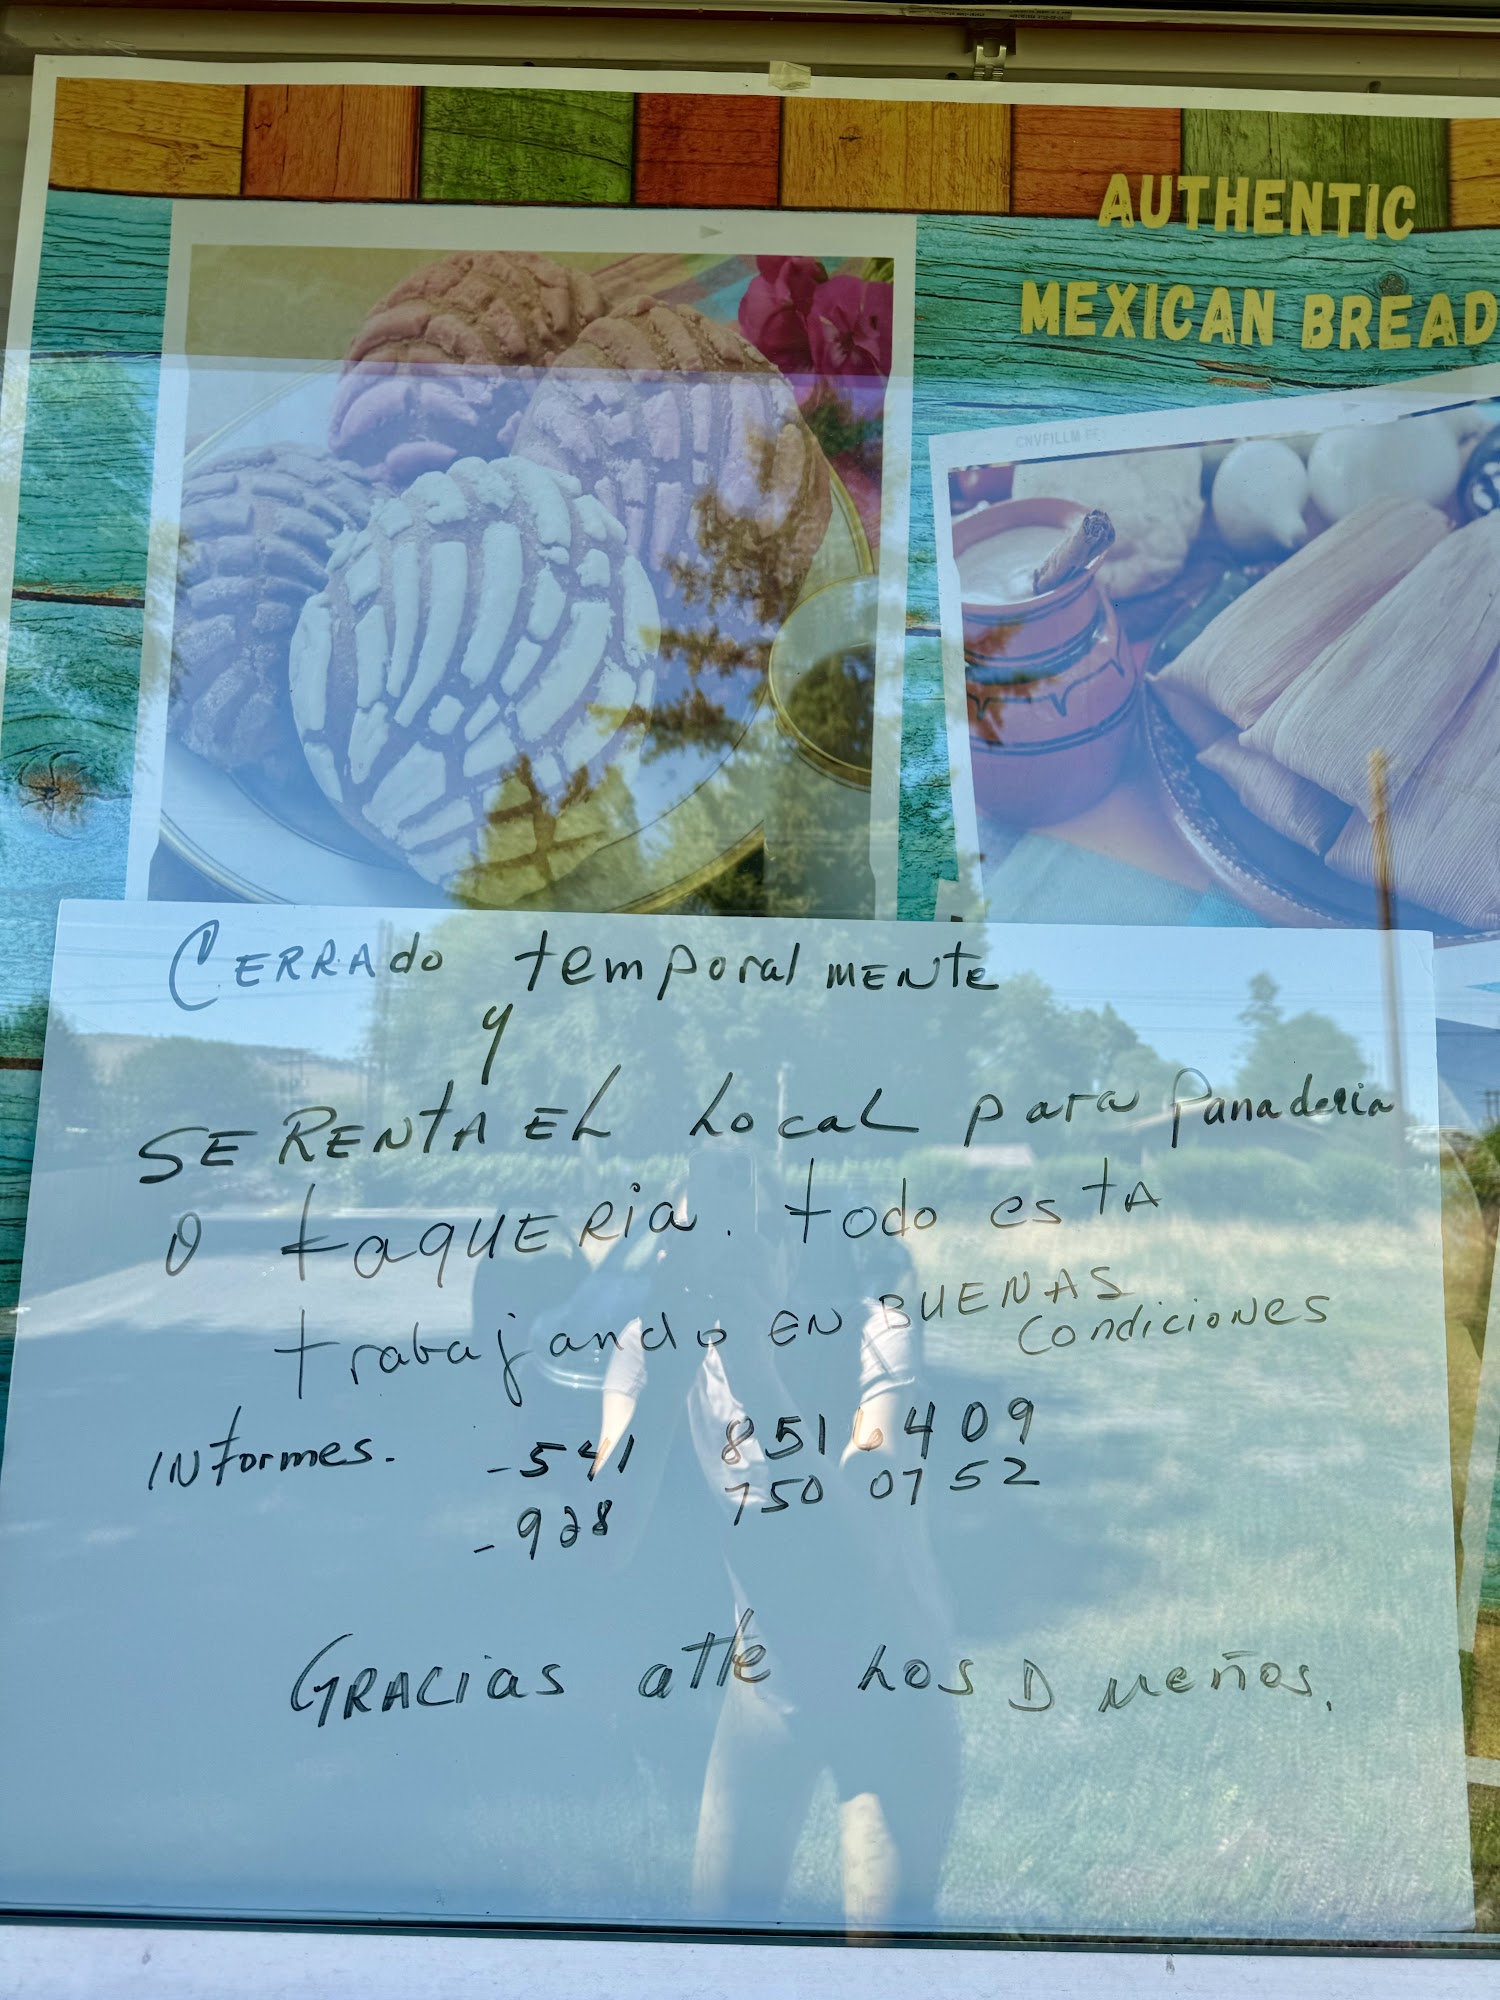 AUTHENTIC
MEXICAN BREAD
CERRAdo temporalMENte
y
SE RENtA EL LocaL para Panaderia
O taqUERia. todo estA
trabajando EN BUENAS
CondicioNes
INformes. -541 851 6409
-928 750 0752
GRACias atte Los DUeños.